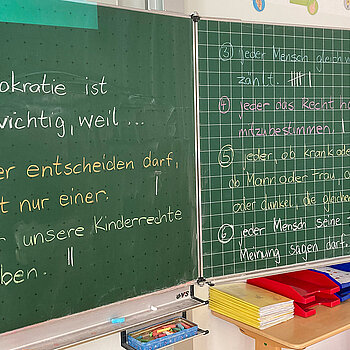 okratie ist
wichtig, weil ...
er entscheiden darf,
t nur einer.
r unsere Kinderrechte
ben.
③ jeder Mensch gleich v
zählt.
④ jeder das Recht ha
mitzubestimmen.
⑤ jeder, ob krank ode
ob Mann oder Frau, o
oder dunkel, die gleichen
⑥ jeder Mensch seine
Meinung sagen darf.